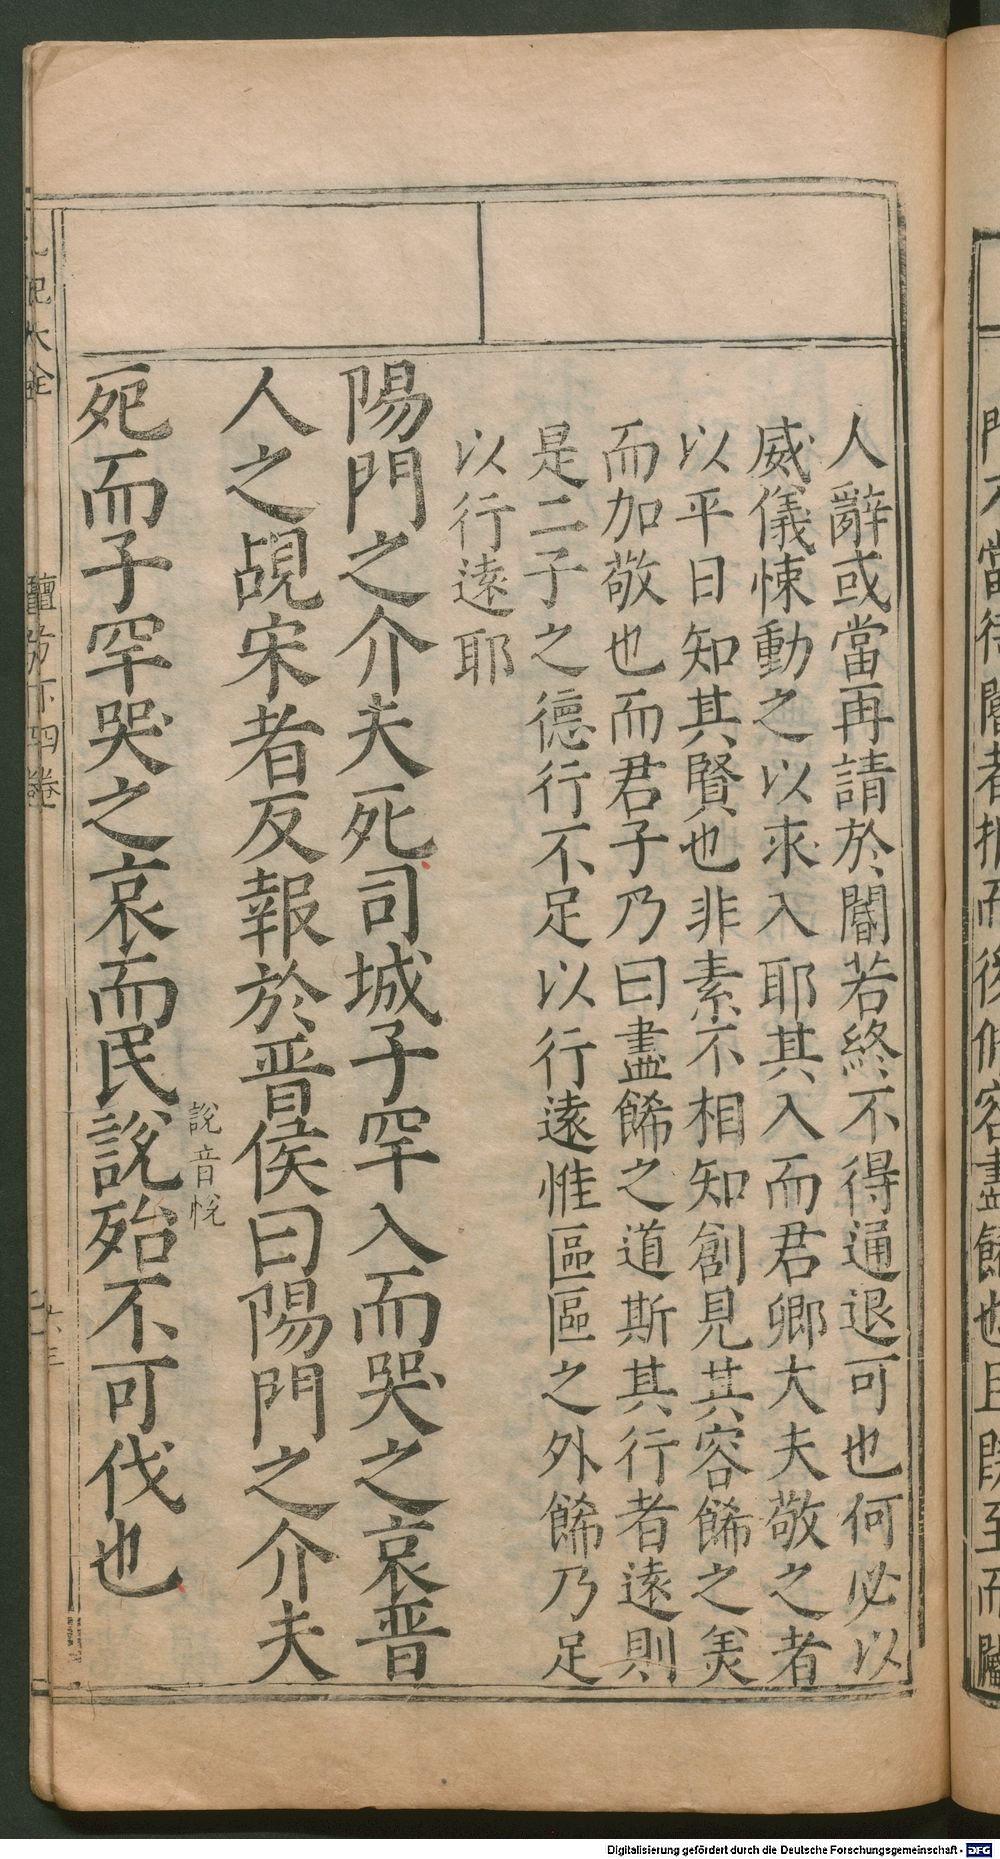 人辭或當再請於閽若終不得通退可也何必以
威儀悚動之以求入耶其入而君卿大夫敬之者
以平日知其賢也非素不相知創見其容餙之美
而加敬也而君子乃曰盡餙之道斯其行者遠則
是二子之德行不足以行遠惟區區之外餙乃足
以行遠耶
陽門之介夫死司城子罕入而哭之哀晋
人之覘宋者反報於晋侯曰陽門之介夫
死而子罕哭之哀而民說殆不可伐也
說音悅
記大全
檀弓下四卷
門人當待閽者拒而後脩容盡餙也且既至而閽
Digitalisierung gefördert durch die Deutsche Forschungsgemeinschaft - DFG